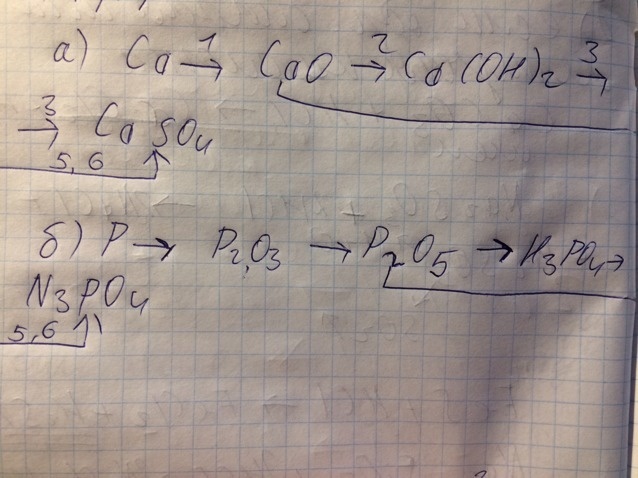 а) Ca 1→ CaO 2→ Ca(OH)2 3→
3→ CaSO4
5,6
б) P → P2O3 → P2O5 → H3PO4→
N3PO4
5,6